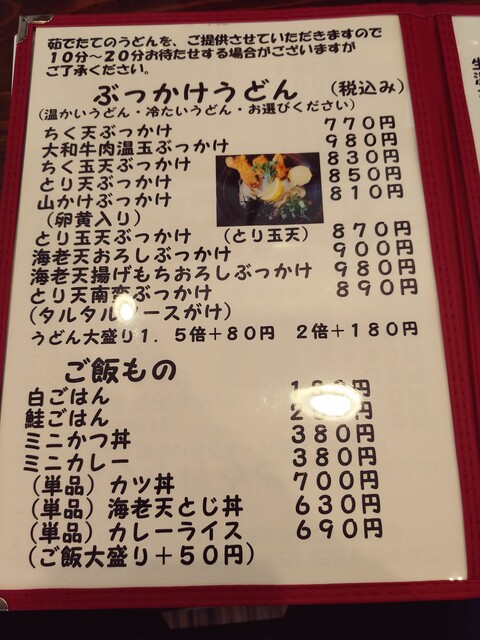 茹でたてのうどんを、ご提供させていただきますので
10分~20分お待たせする場合がございますが
ご了承ください。
ぶっかけうどん (税込み)
(温かいうどん・冷たいうどん・お選びください)
ちく天ぶっかけ 770円
大和牛肉温玉ぶっかけ 980円
ちく玉天ぶっかけ 830円
とり天ぶっかけ 850円
山かけぶっかけ 810円
(卵黄入り)
とり玉天ぶっかけ (とり玉天) 870円
海老天おろしぶっかけ 900円
海老天揚げもちおろしぶっかけ 980円
とり天南蛮ぶっかけ 890円
(タルタルソースがけ)
うどん大盛り1.5倍+80円 2倍+180円
ご飯もの
白ごはん
鮭ごはん
ミニかつ丼 380円
ミニカレー 380円
(単品)カツ丼 700円
(単品)海老天とじ丼 630円
(単品)カレーライス 690円
(ご飯大盛り+50円)